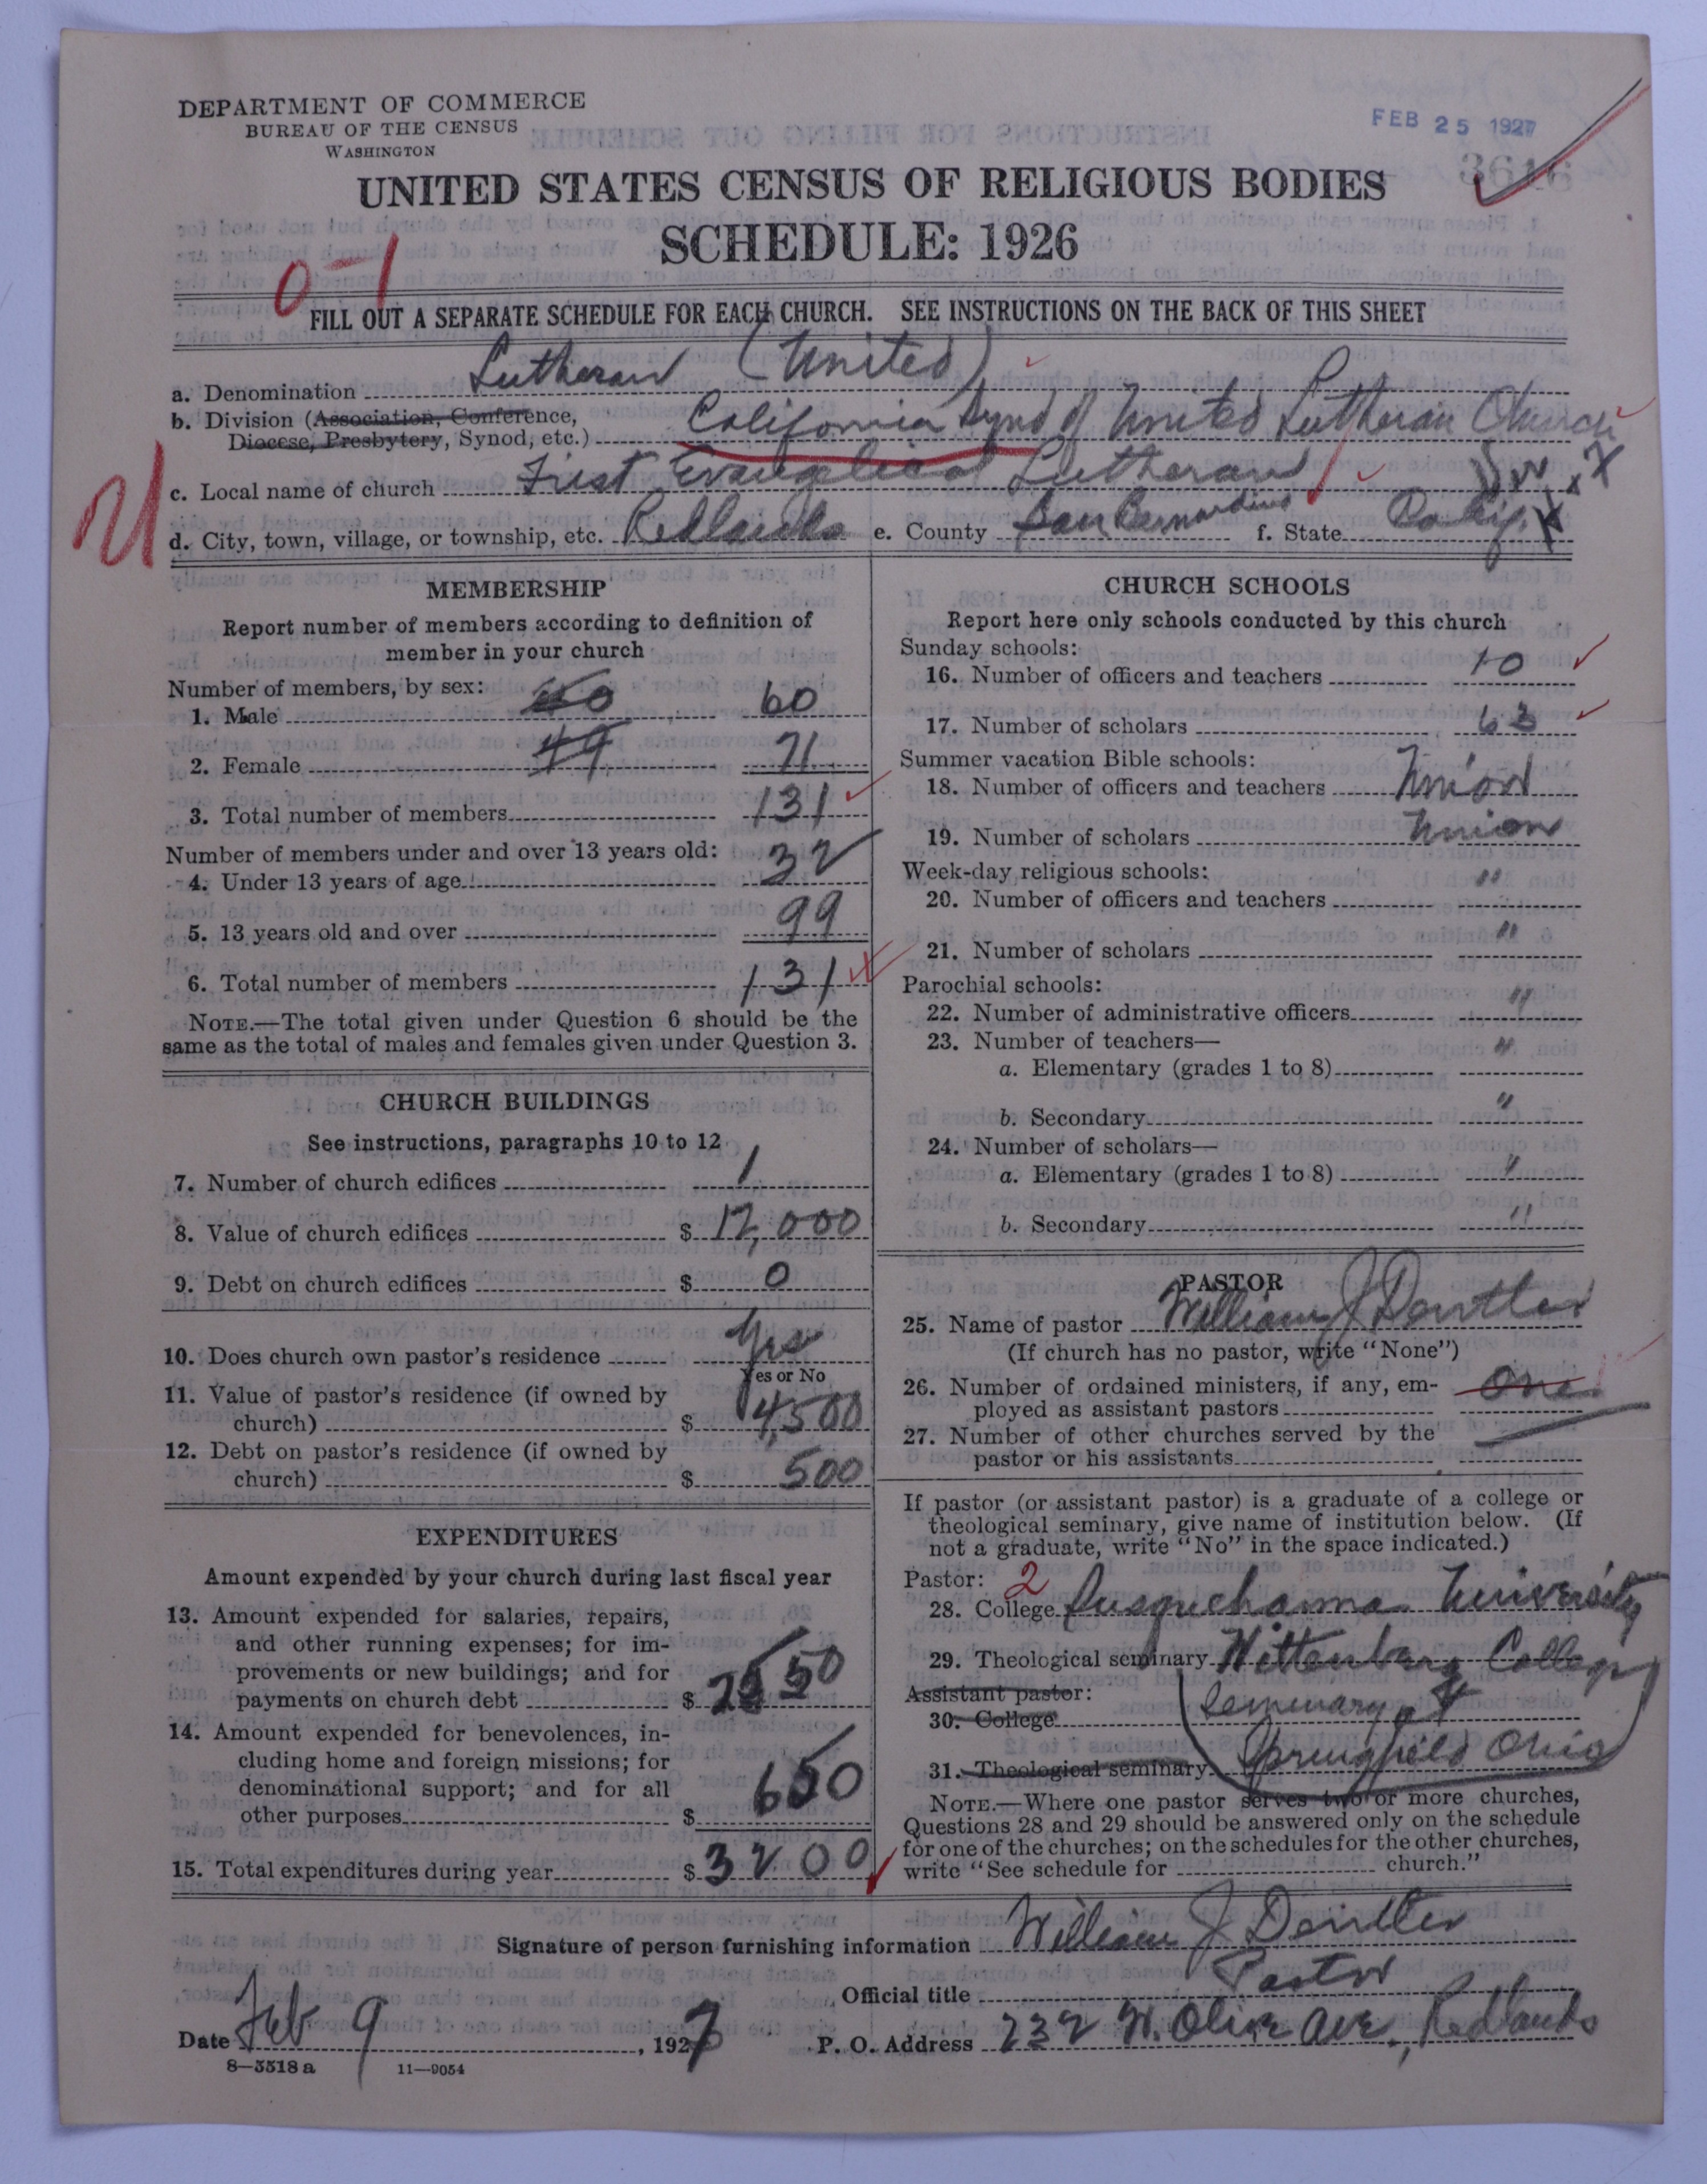 DEPARTMENT OF COMMERCE
BUREAU OF THE CENSUS
WASHINGTON
FEB 25 1927
3646
UNITED STATES CENSUS OF RELIGIOUS BODIES
SCHEDULE: 1926
0-1
FILL OUT A SEPARATE SCHEDULE FOR EACH CHURCH. SEE INSTRUCTIONS ON THE BACK OF THIS SHEET
a. Denomination Lutheran (United)
b. Division (Association, Conference, Diocese, Presbytery, Synod, etc.) California Synod of United Lutheran Church
c. Local name of church First Evangelical Lutheran
d. City, town, village, or township, etc. Redlands e. County San Bernardino f. State Calif.
MEMBERSHIP
Report number of members according to definition of
member in your church
Number of members, by sex:
1. Male 60
2. Female 49 71
3. Total number of members 131
Number of members under and over 13 years old:
4. Under 13 years of age 32
5. 13 years old and over 99
6. Total number of members 131
NOTE.—The total given under Question 6 should be the
same as the total of males and females given under Question 3.
CHURCH BUILDINGS
See instructions, paragraphs 10 to 12
7. Number of church edifices 1
8. Value of church edifices $ 12,000
9. Debt on church edifices $ 0
10. Does church own pastor's residence Yes
Yes or No
11. Value of pastor's residence (if owned by
church) $ 4,500
12. Debt on pastor's residence (if owned by
church) $ 500
EXPENDITURES
Amount expended by your church during last fiscal year
13. Amount expended for salaries, repairs,
and other running expenses; for im-
provements or new buildings; and for
payments on church debt $ 2550
14. Amount expended for benevolences, in-
cluding home and foreign missions; for
denominational support; and for all
other purposes $ 650
15. Total expenditures during year $ 3200
CHURCH SCHOOLS
Report here only schools conducted by this church
Sunday schools:
16. Number of officers and teachers 10
17. Number of scholars 63
Summer vacation Bible schools:
18. Number of officers and teachers Union
19. Number of scholars Union
Week-day religious schools:
20. Number of officers and teachers "
21. Number of scholars "
Parochial schools:
22. Number of administrative officers "
23. Number of teachers—
a. Elementary (grades 1 to 8) "
b. Secondary "
24. Number of scholars—
a. Elementary (grades 1 to 8) "
b. Secondary "
PASTOR
25. Name of pastor William J Dentler
(If church has no pastor, write "None")
26. Number of ordained ministers, if any, em-
ployed as assistant pastors One
27. Number of other churches served by the
pastor or his assistants
If pastor (or assistant pastor) is a graduate of a college or
theological seminary, give name of institution below. (If
not a graduate, write "No" in the space indicated.)
Pastor: 2
28. College Susquehanna University
29. Theological seminary Wittenberg College
Assistant pastor:
30. College Seminary at
31. Theological seminary Springfield Ohio
NOTE.—Where one pastor serves two or more churches,
Questions 28 and 29 should be answered only on the schedule
for one of the churches; on the schedules for the other churches,
write "See schedule for church."
Signature of person furnishing information William J Dentler
Official title Pastor
Date Feb 9, 1927 P. O. Address 232 W. Olive Ave., Redlands
8—5518 a 11—9054